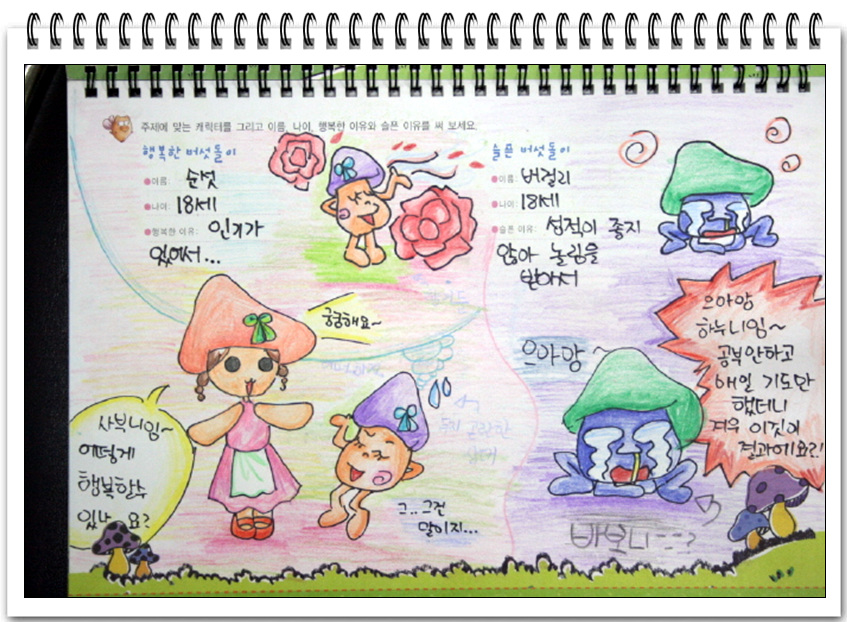 주제에 맞는 캐릭터를 그리고 이름, 나이, 행복한 이유와 슬픈 이유를 써 보세요.
행복한 버섯돌이
이름: 순섯
나이: 18세
행복한 이유: 인기가
있어서...
슬픈 버섯돌이
이름: 버걸리
나이: 18세
슬픈 이유: 성적이 좋지
않아 놀림을
받아서
궁금해요~
사부니임~
어떻게
행복할수
있나 요?
그.. 그건
말이지...
으아앙~
으아앙
하누니임~
공부안하고
매일 기도만
했더니
겨우 이것이
결과에요?!
바보니--?